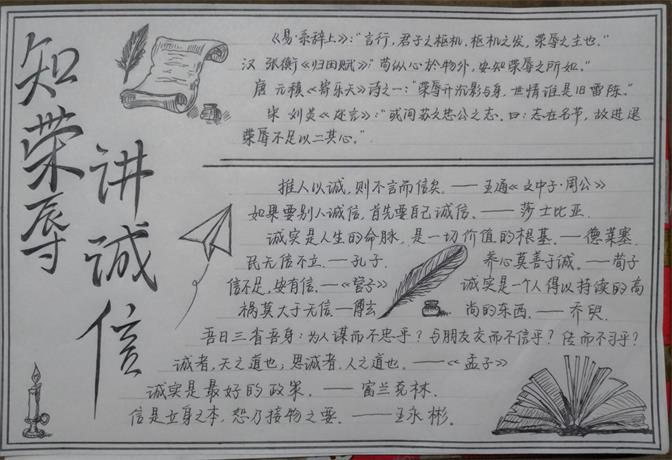 知荣辱
讲诚信
《易·系辞上》：“言行，君子之枢机，枢机之发，荣辱之主也。”
汉 张衡《归田赋》：“苟纵心於物外，安知荣辱之所如。”
唐 元稹《寄乐天》诗之一：“荣辱升沉影与身，世情谁是旧雷陈。”
宋 刘炎《迩言》：“或问苏文忠公之志。曰：志在名节，故进退
荣辱不足以二其心。”
推人以诚，则不言而信矣。——王通《文中子·周公》
如果要别人诚信，首先要自己诚信。——莎士比亚.
诚实是人生的命脉，是一切价值的根基.——德莱塞.
民无信不立.——孔子.
养心莫善于诚。——荀子
信不足，安有信.——《管子》
诚实是一个人得以持续的高
祸莫大于无信.—傅玄
尚的东西.——乔叟.
吾日三省吾身：为人谋而不忠乎？与朋友交而不信乎？传而不习乎？
诚者，天之道也；思诚者，人之道也.——《孟子》
诚实是最好的政策.——富兰克林.
信是立身之本，恕乃接物之要.——王永彬.